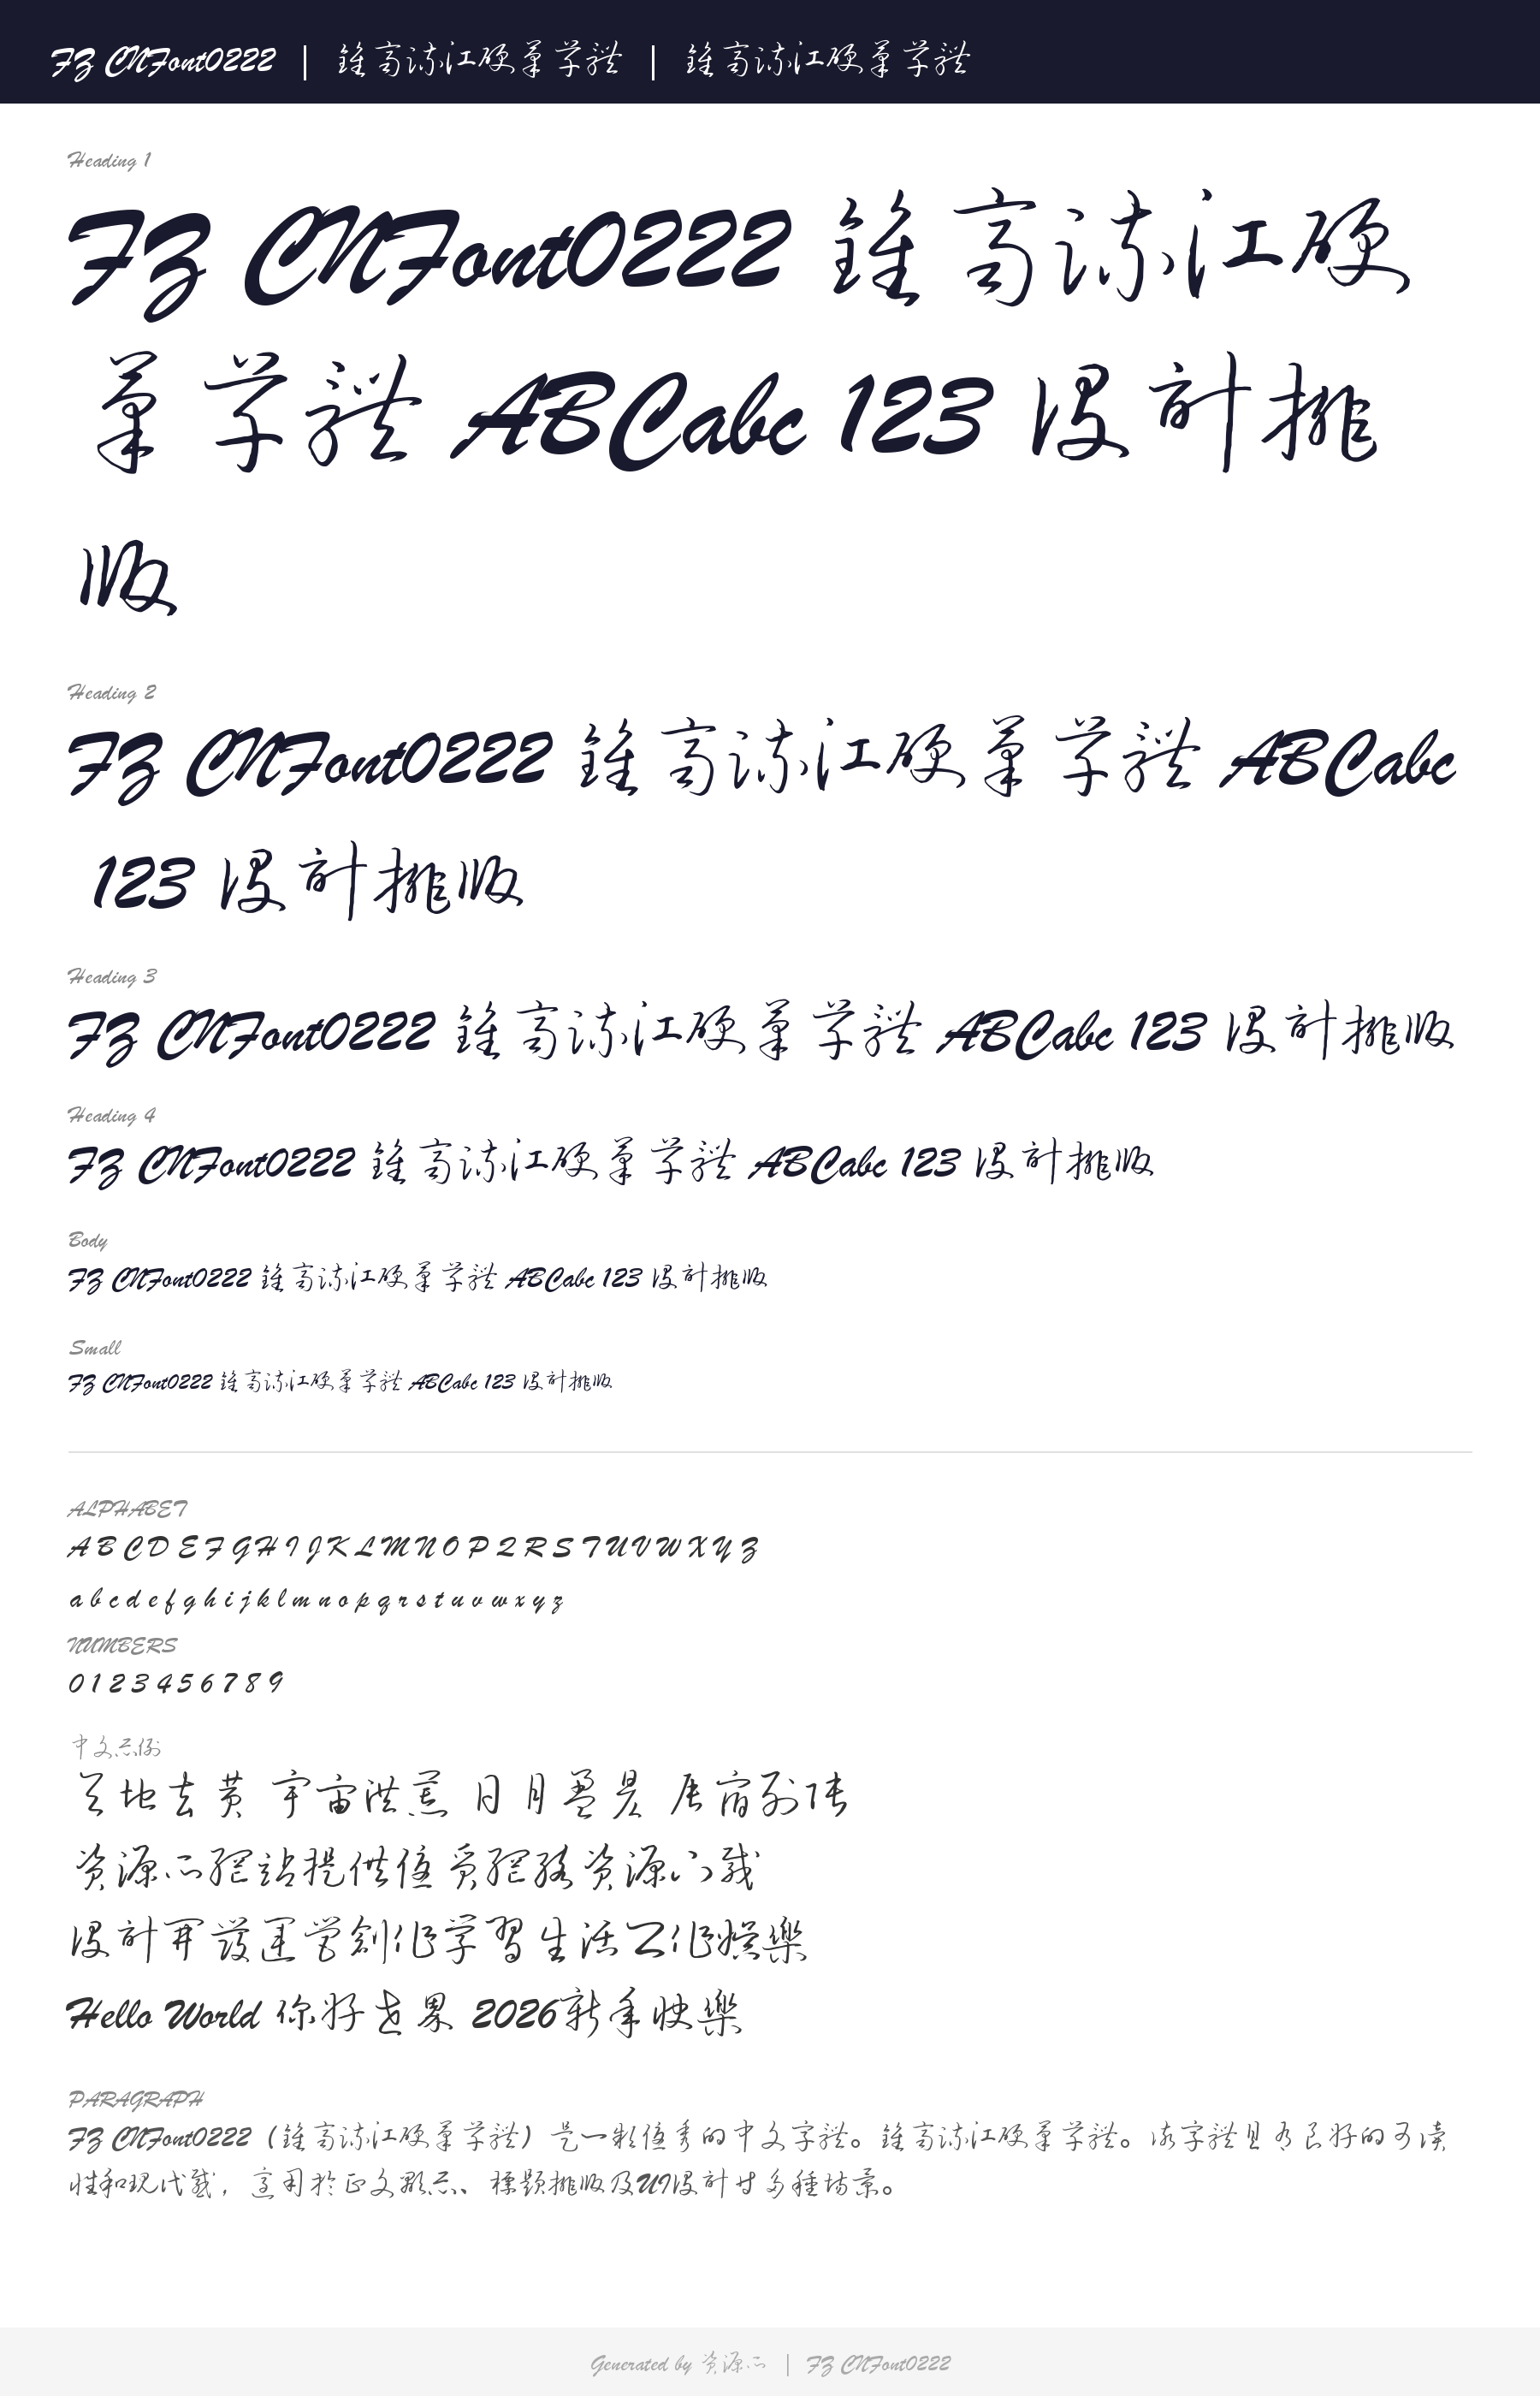 FZ CNFont0222 | 鍾齊流江硬筆草體 | 鍾齊流江硬筆草體
Heading 1
FZ CNFont0222 鍾齊流江硬
筆草體 ABCabc 123 設計排
版
Heading 2
FZ CNFont0222 鍾齊流江硬筆草體 ABCabc
123 設計排版
Heading 3
FZ CNFont0222 鍾齊流江硬筆草體 ABCabc 123 設計排版
Heading 4
FZ CNFont0222 鍾齊流江硬筆草體 ABCabc 123 設計排版
Body
FZ CNFont0222 鍾齊流江硬筆草體 ABCabc 123 設計排版
Small
FZ CNFont0222 鍾齊流江硬筆草體 ABCabc 123 設計排版
ALPHABET
A B C D E F G H I J K L M N O P Q R S T U V W X Y Z
a b c d e f g h i j k l m n o p q r s t u v w x y z
NUMBERS
0 1 2 3 4 5 6 7 8 9
中文示例
天地玄黄 宇宙洪荒 日月盈昃 辰宿列張
資源網站提供優質網絡資源下載
設計開發運營創作學習生活工作娛樂
Hello World 你好世界 2026新年快樂
PARAGRAPH
FZ CNFont0222（鍾齊流江硬筆草體）是一款優秀的中文字體。鍾齊流江硬筆草體。該字體具有良好的可讀
性和現代感，適用於正文顯示、標題排版及UI設計等多種場景。
Generated by 資源 | FZ CNFont0222